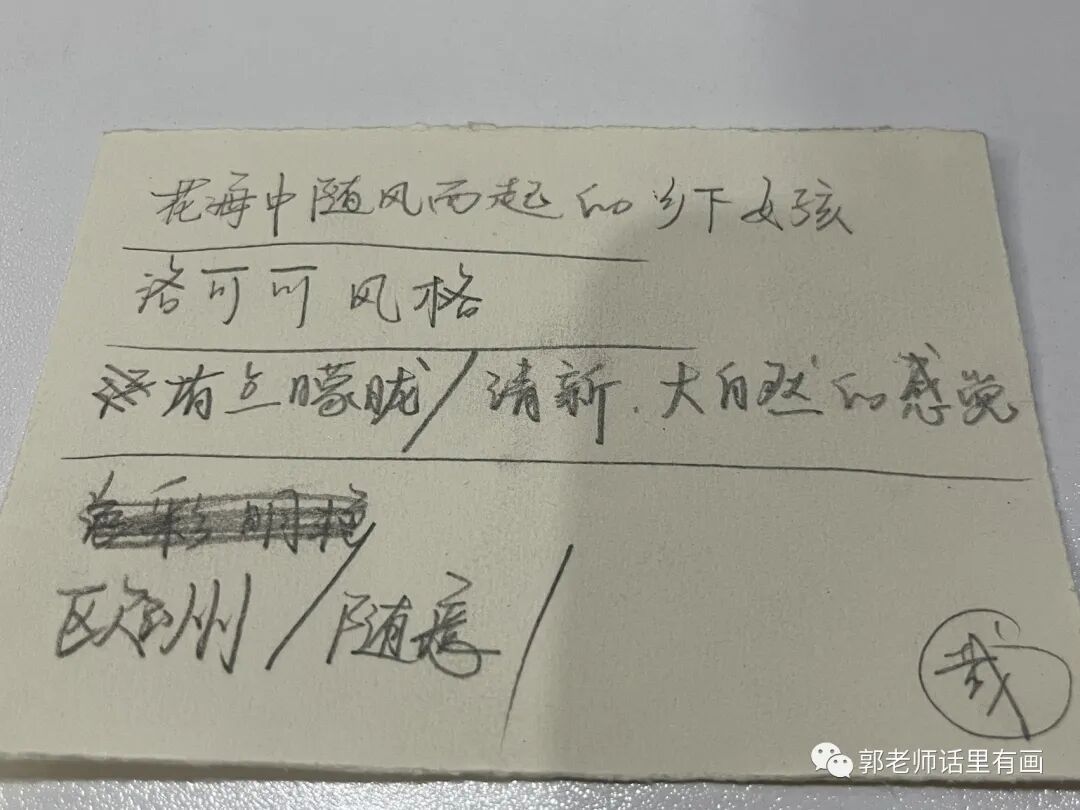 花海中随风而起的乡下女孩
洛可可风格
有点朦胧/清新.大自然的感觉
色彩明艳
欧州/随意/
郭老师话里有画